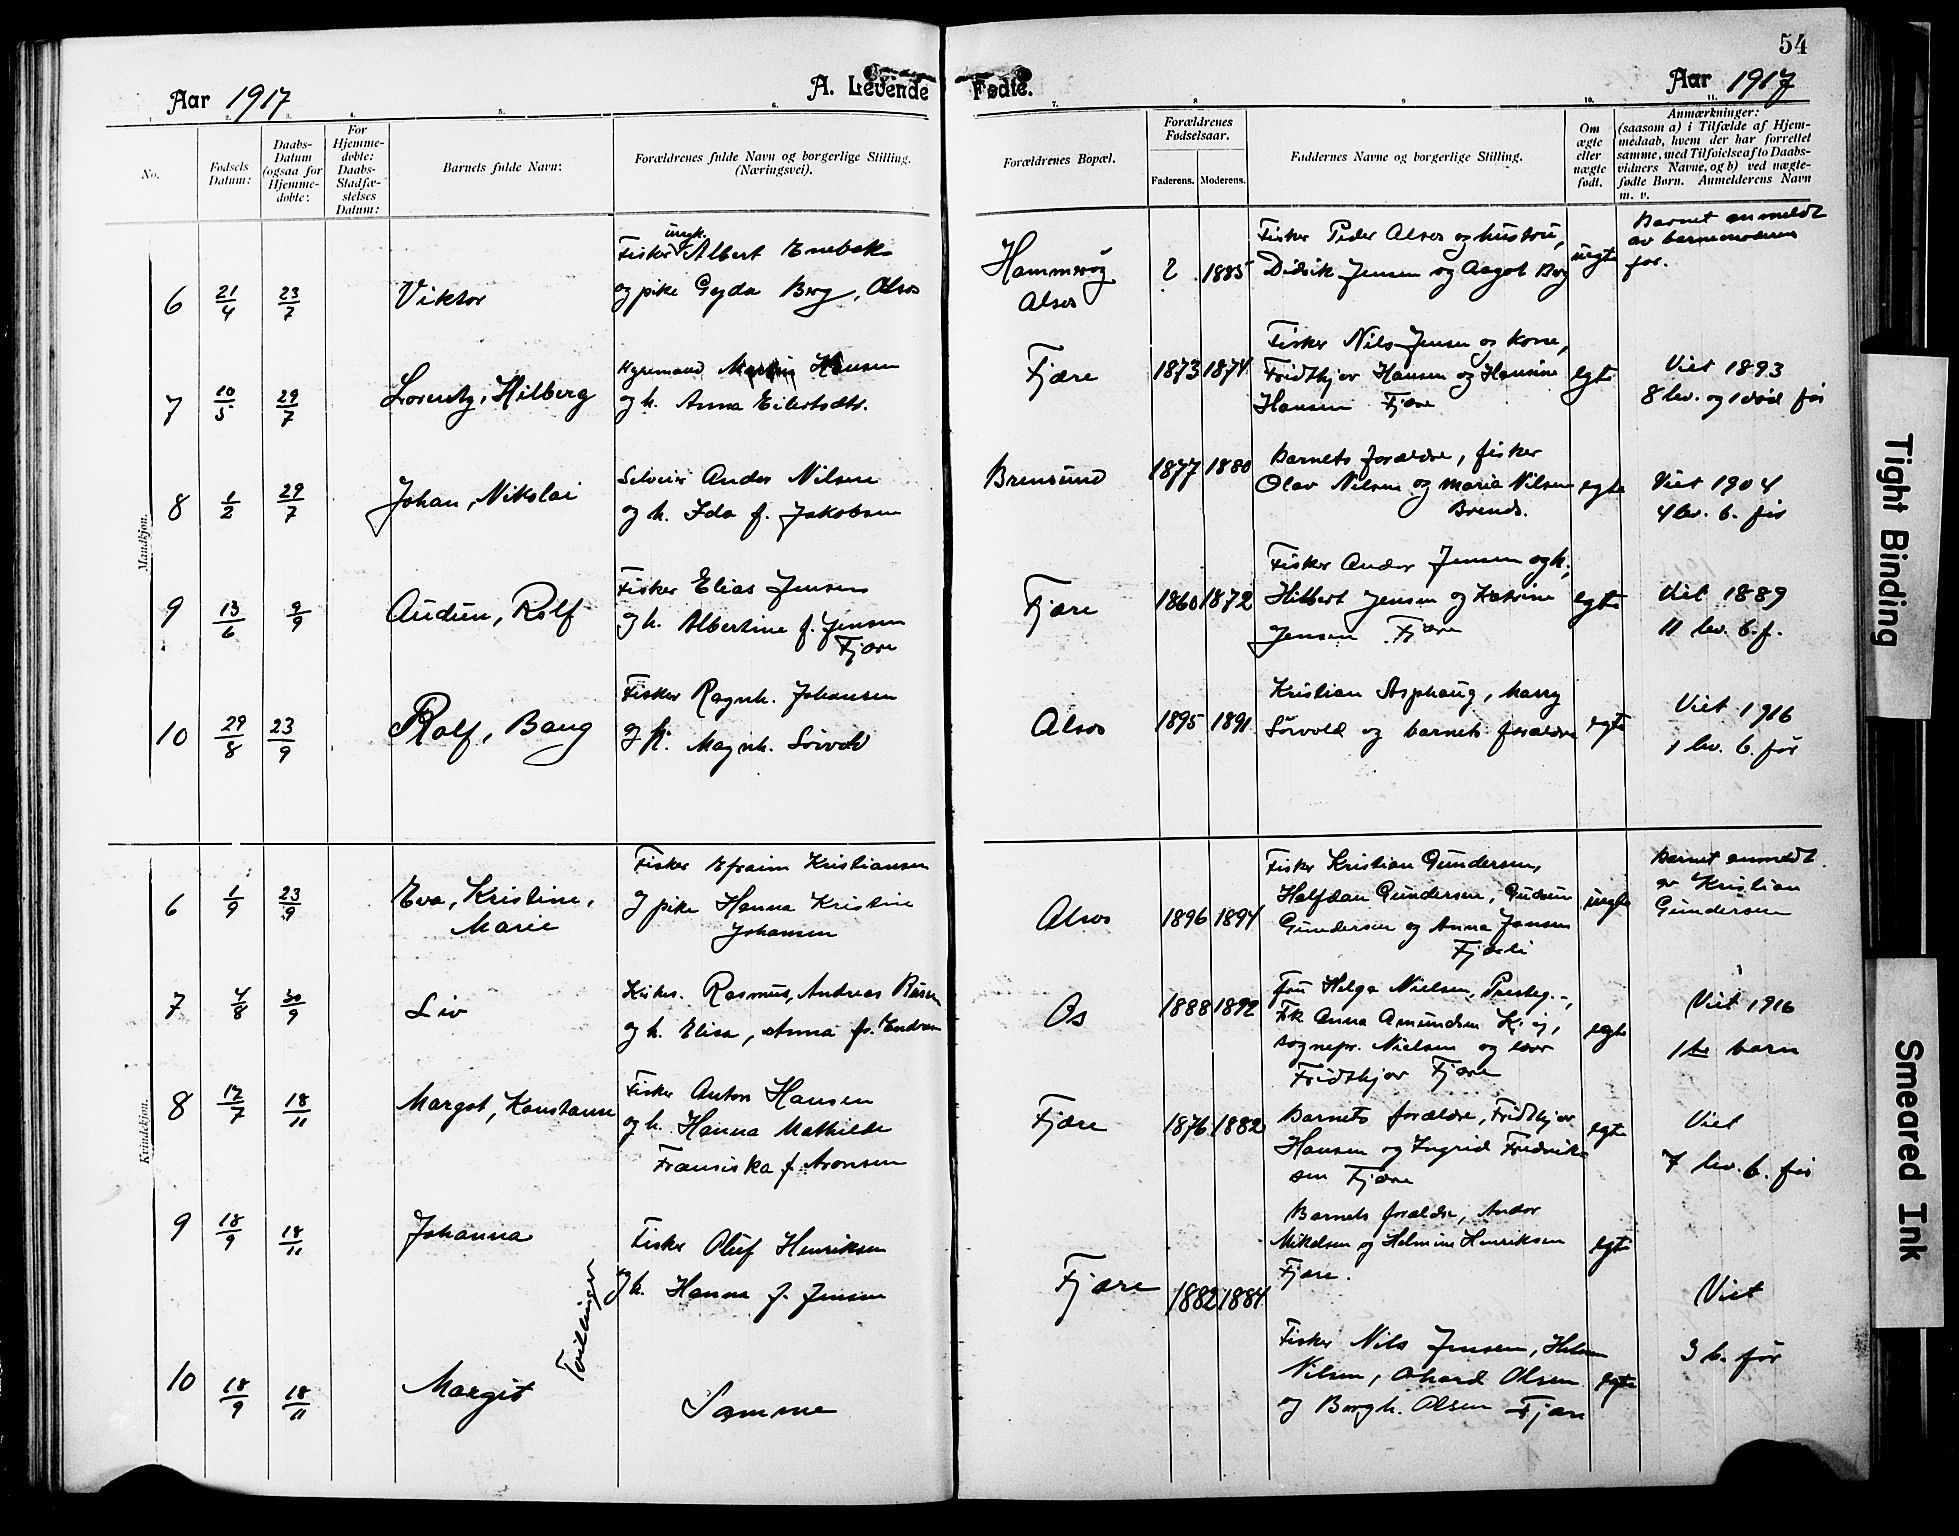 54
Aar 1917
A. Levende Fødte.
Aar 1917
1. 2. 3. 4. 5. 6. 7. 8 9 10. 11.
No.
Fødsels Datum:
Daabs-Datum (ogsaa for Hjemme-døbte:
For Hjemme-døbte: Daabs-Stadfæ-stelses Datum:
Barnets fulde Navn:
Forældrenes fulde Navn og borgerlige Stilling. (Næringsvei).
Forældrenes Bopæl.
Forældrenes Fødselsaar.
Faderens. Moderens.
Faddernes Navne og borgerlige Stilling.
Om ægte eller nægte født.
Anmærkninger:
(saasom a) i Tilfælde af Hjem-
medaab, hvem der har forrettet
samme, med Tilføielse af to Daabs-
vidners Navne, og b) ved nægte-
fødte Børn. Anmelderens Navn
m. v.
Mandkjøn.
6 21/4 23/7 Viktor
ungk.
Fisker Albert Enebak
og pike Gyda Berg, Alsos
Hammerög
Alsos
? 1885
Fisker Peder Alsos og hustru,
Didrik Jensen og Aagot Berg
uegte
Barnet anmeldt
av barnemoderens
far.
7 10/5 29/7 Lorentz, Hilberg
Hyremand Martin Hansen
og h. Anna Eilertsdtr.
Fjære
1873 1874
Fisker Nils Jensen og kone,
Fridthjov Hansen og Hansine
Hansen Fjære
egte
Viet 1893
8 lev. og 1 død før
8 1/2 29/7 Johan, Nikolai
Selveier Andor Nilsen
og h. Ida f. Jakobsen
Brensund
1877 1880
Barnets forældre, fisker
Olav Nilsen og Maria Nilsen
Brends.
egte
Viet 1904
4 lev. b. før
9 13/6 9/9 Audun, Rolf
Fisker Elias Jensen
og h. Albertine f. Jensen
Fjære
Fjære
1860 1872
Fisker Andor Jensen og h.,
Hilbert Jensen og Katrine
Jensen Fjære
egte
Viet 1889
11 lev. b. f.
10 29/8 23/9 Rolf, Bang
Fisker Ragnh. Johansen
og h. Magnh. Sörvold
Alsos
1895 1891
Kristian Asphaug, Marry
Sörvold og barnets forældre
egte
Viet 1916
1 lev. b. før
Kvindekjøn.
6 1/9 23/9 Eva, Kristine,
Marie
Fisker Efraim Kristiansen
og pike Hanna Kristine
Johansen
Alsos
1896 1894
Fisker Kristian Gundersen,
Halfdan Gundersen, Gudrun
Gundersen og Anna Jensen
Fjærli
uegte
Barnet anmeldt
av Kristian
Gundersen
7 4/8 30/9 Liv
Kirkes. Rasmus, Andreas
og h. Elisa, Anna f.
Os
1888 1892
fru Helga Nielsen, Presteg.,
Frk Anna Amundsen
sognepr. Nielsen og lærer
Fridthjov Fjære
egte
Viet 1916
1ste barn
8 12/7 18/11 Margot, Konstanse
Fisker Anton Hansen
og h. Hanna Mathilde
Fransiska f. Aronsen
Fjære
1876 1882
Barnets forældre, Fridthjov
Hansen og Ingrid Fredrik-
sen Fjære
egte
Viet
7 lev. b. før
9 18/9 18/11 Johanna
Fisker Oluf Henriksen
og h. Hanna f. Jensen
Fjære
1882 1884
Barnets forældre, Andor
Mikelsen og Helmine Henriksen
Fjære.
egte
Viet
3 b. før
Tvillinger
10 18/9 18/11 Margit
Samme
Fisker Nils Jensen,
Nilsen, Olsen
og Borgh. Olsen Fjære
egte
Tight Binding
Smeared Ink